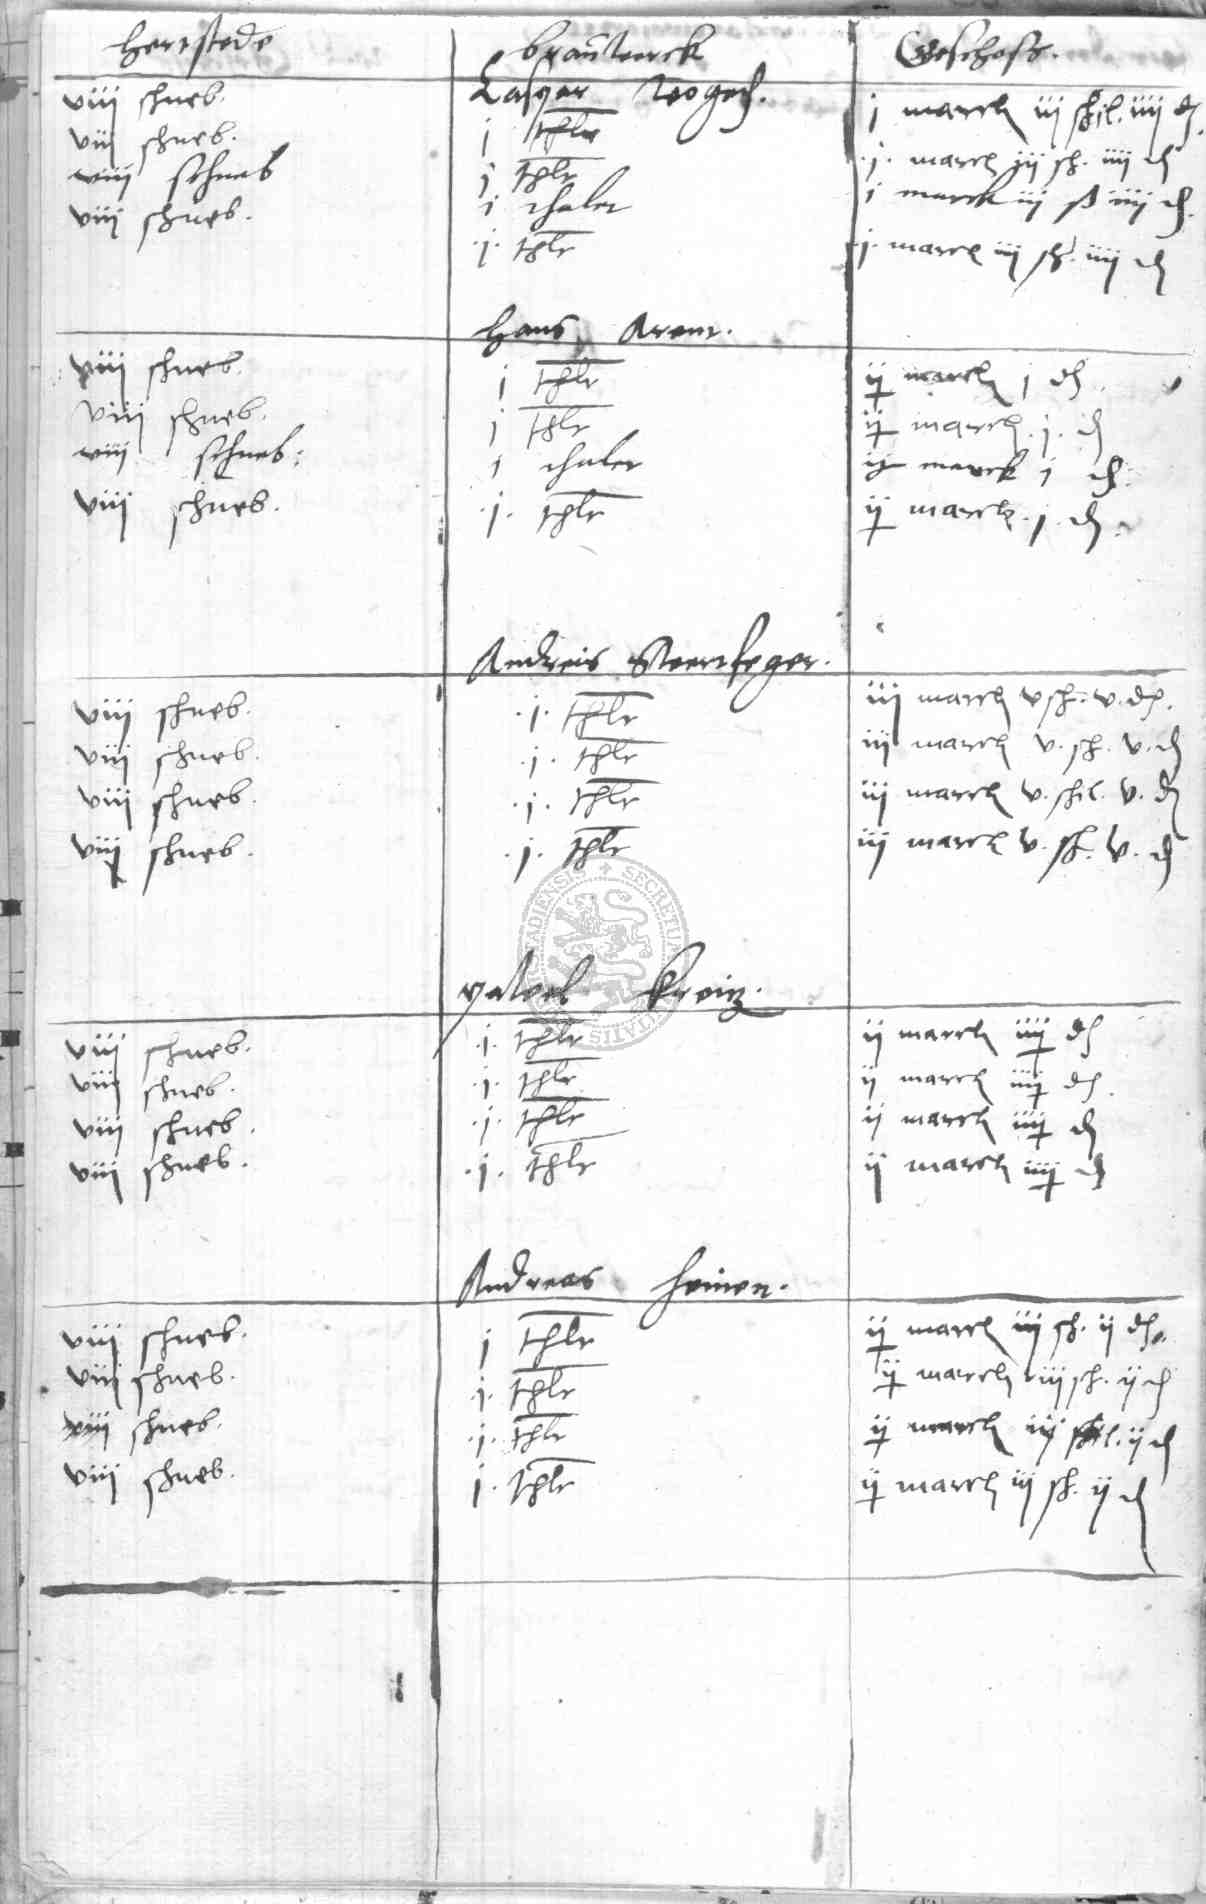 Herrstede brauwerck Geschoss.
Casper
viii schneb. j thlr j marck iij schil. iiij d
viij schneb. j thlr j marck iij sch. iiij d
viii schneb j thaler j marck iij ß iiij d
viij schneb. j. thlr j. marck iij sch. iiij d
Hans Arent.
viij schneb. j thlr ij marck j d
viij schneb. j thlr ij marck. j. d
viij schneb: j thaler ij marck j d
viij schneb. j. thlr ij marck. j. d
Andreis
viij schneb. .j. thlr iij marck v sch. v. d
viij schneb. .j. thlr iij marck v. sch. v. d
viij schneb. .j. thlr iij marck v. schil. v. d
viij schneb. .j. thlr iij marck v. sch. v. d
SECRETUM
pawel
viij schneb. .j. thlr ij marck iiij d
viij schneb. .j. thlr ij marck iiij d
viij schneb. .j. thlr ij marck iiij d
viij schneb. .j. thlr ij marck iiij d
Andreas Heinen.
viij schneb. j thlr ij marck iij sch. ij d
viij schneb. j. thlr ij marck iij sch. ij d
viij schneb. .j. thlr ij marck iij schil. ij d
viij schneb. j. thlr ij marck iij sch. ij d